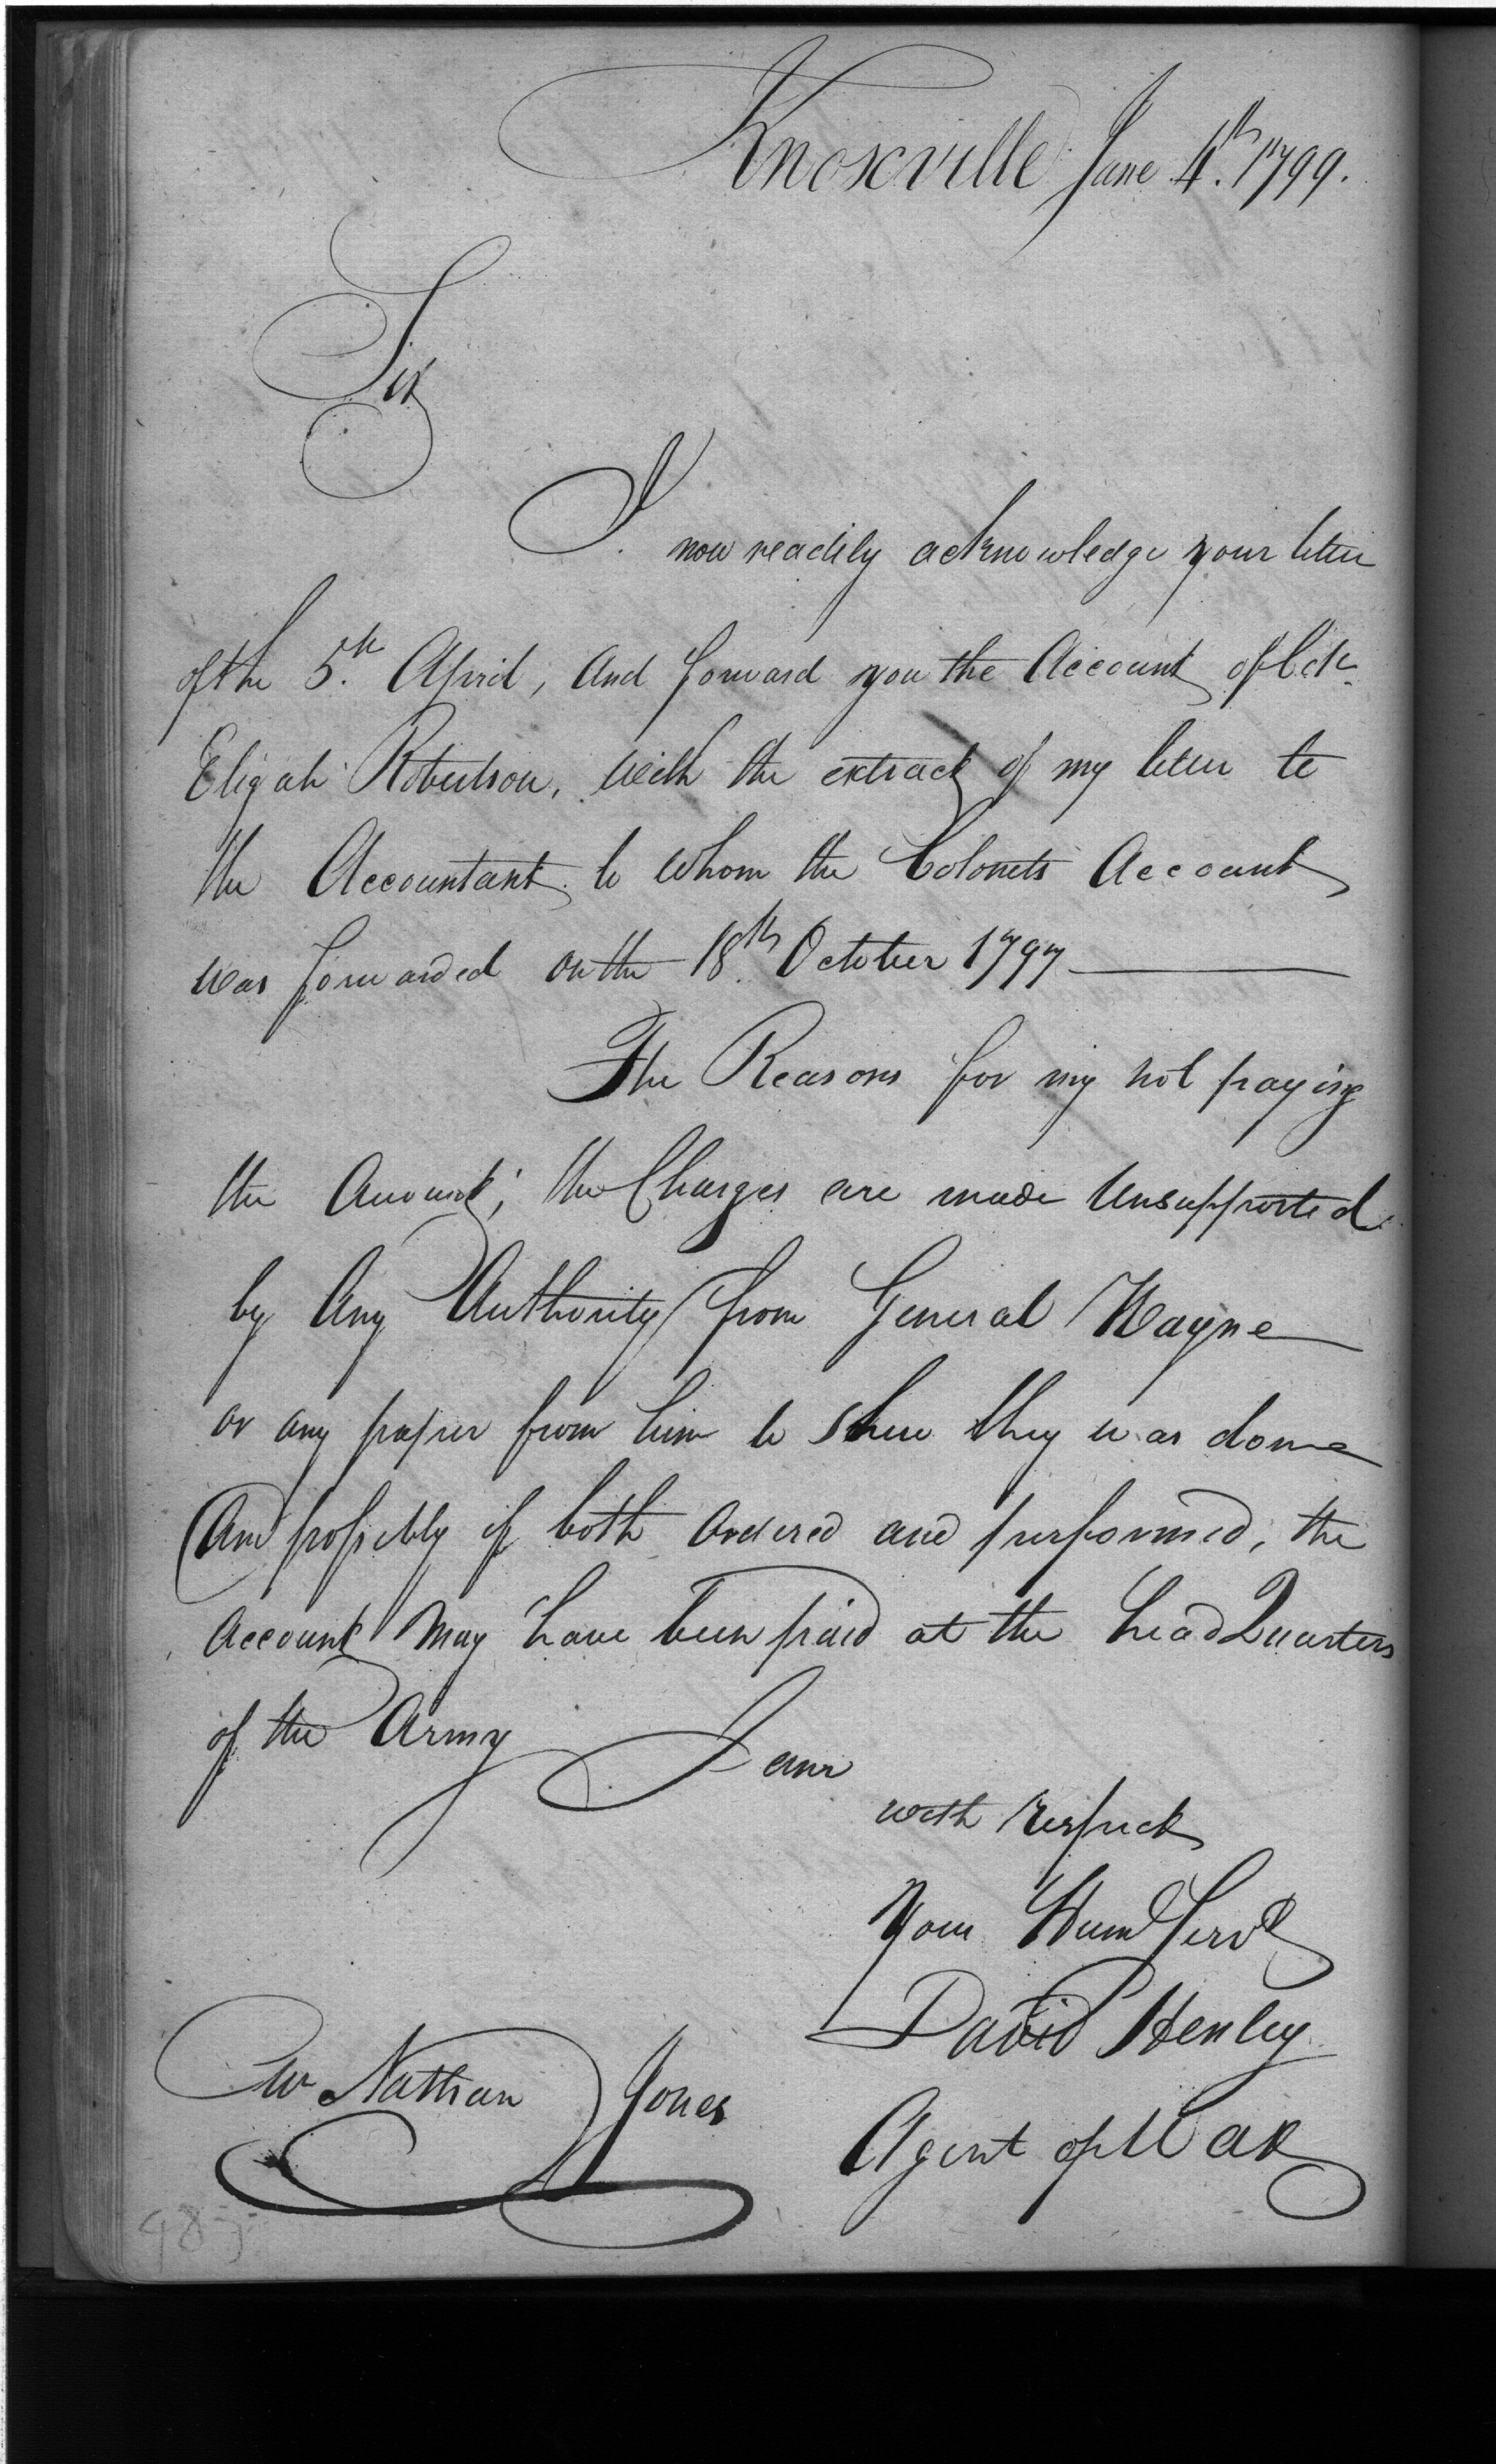 Knoxville June 4th. 1799.
Sir
I now readily acknowledge your letter
of the 5th. April, and forward you the Account of Colo.
Elijah Robertson, with the extract of my letter to
the Accountant to whom the Colonels Account
was forwarded on the 18th October 1797
The Reasons for my not paying
the Amount; the Charges are made Unsupported
by Any Authority from General Wayne
or any paper from him to shew they was done
And possibly if both ordered and performed, the
Account May have been paid at the head Quarters
of the Army I am
with respect
Your Hum Servt
David Henley
Agent of War
Nathan Jones